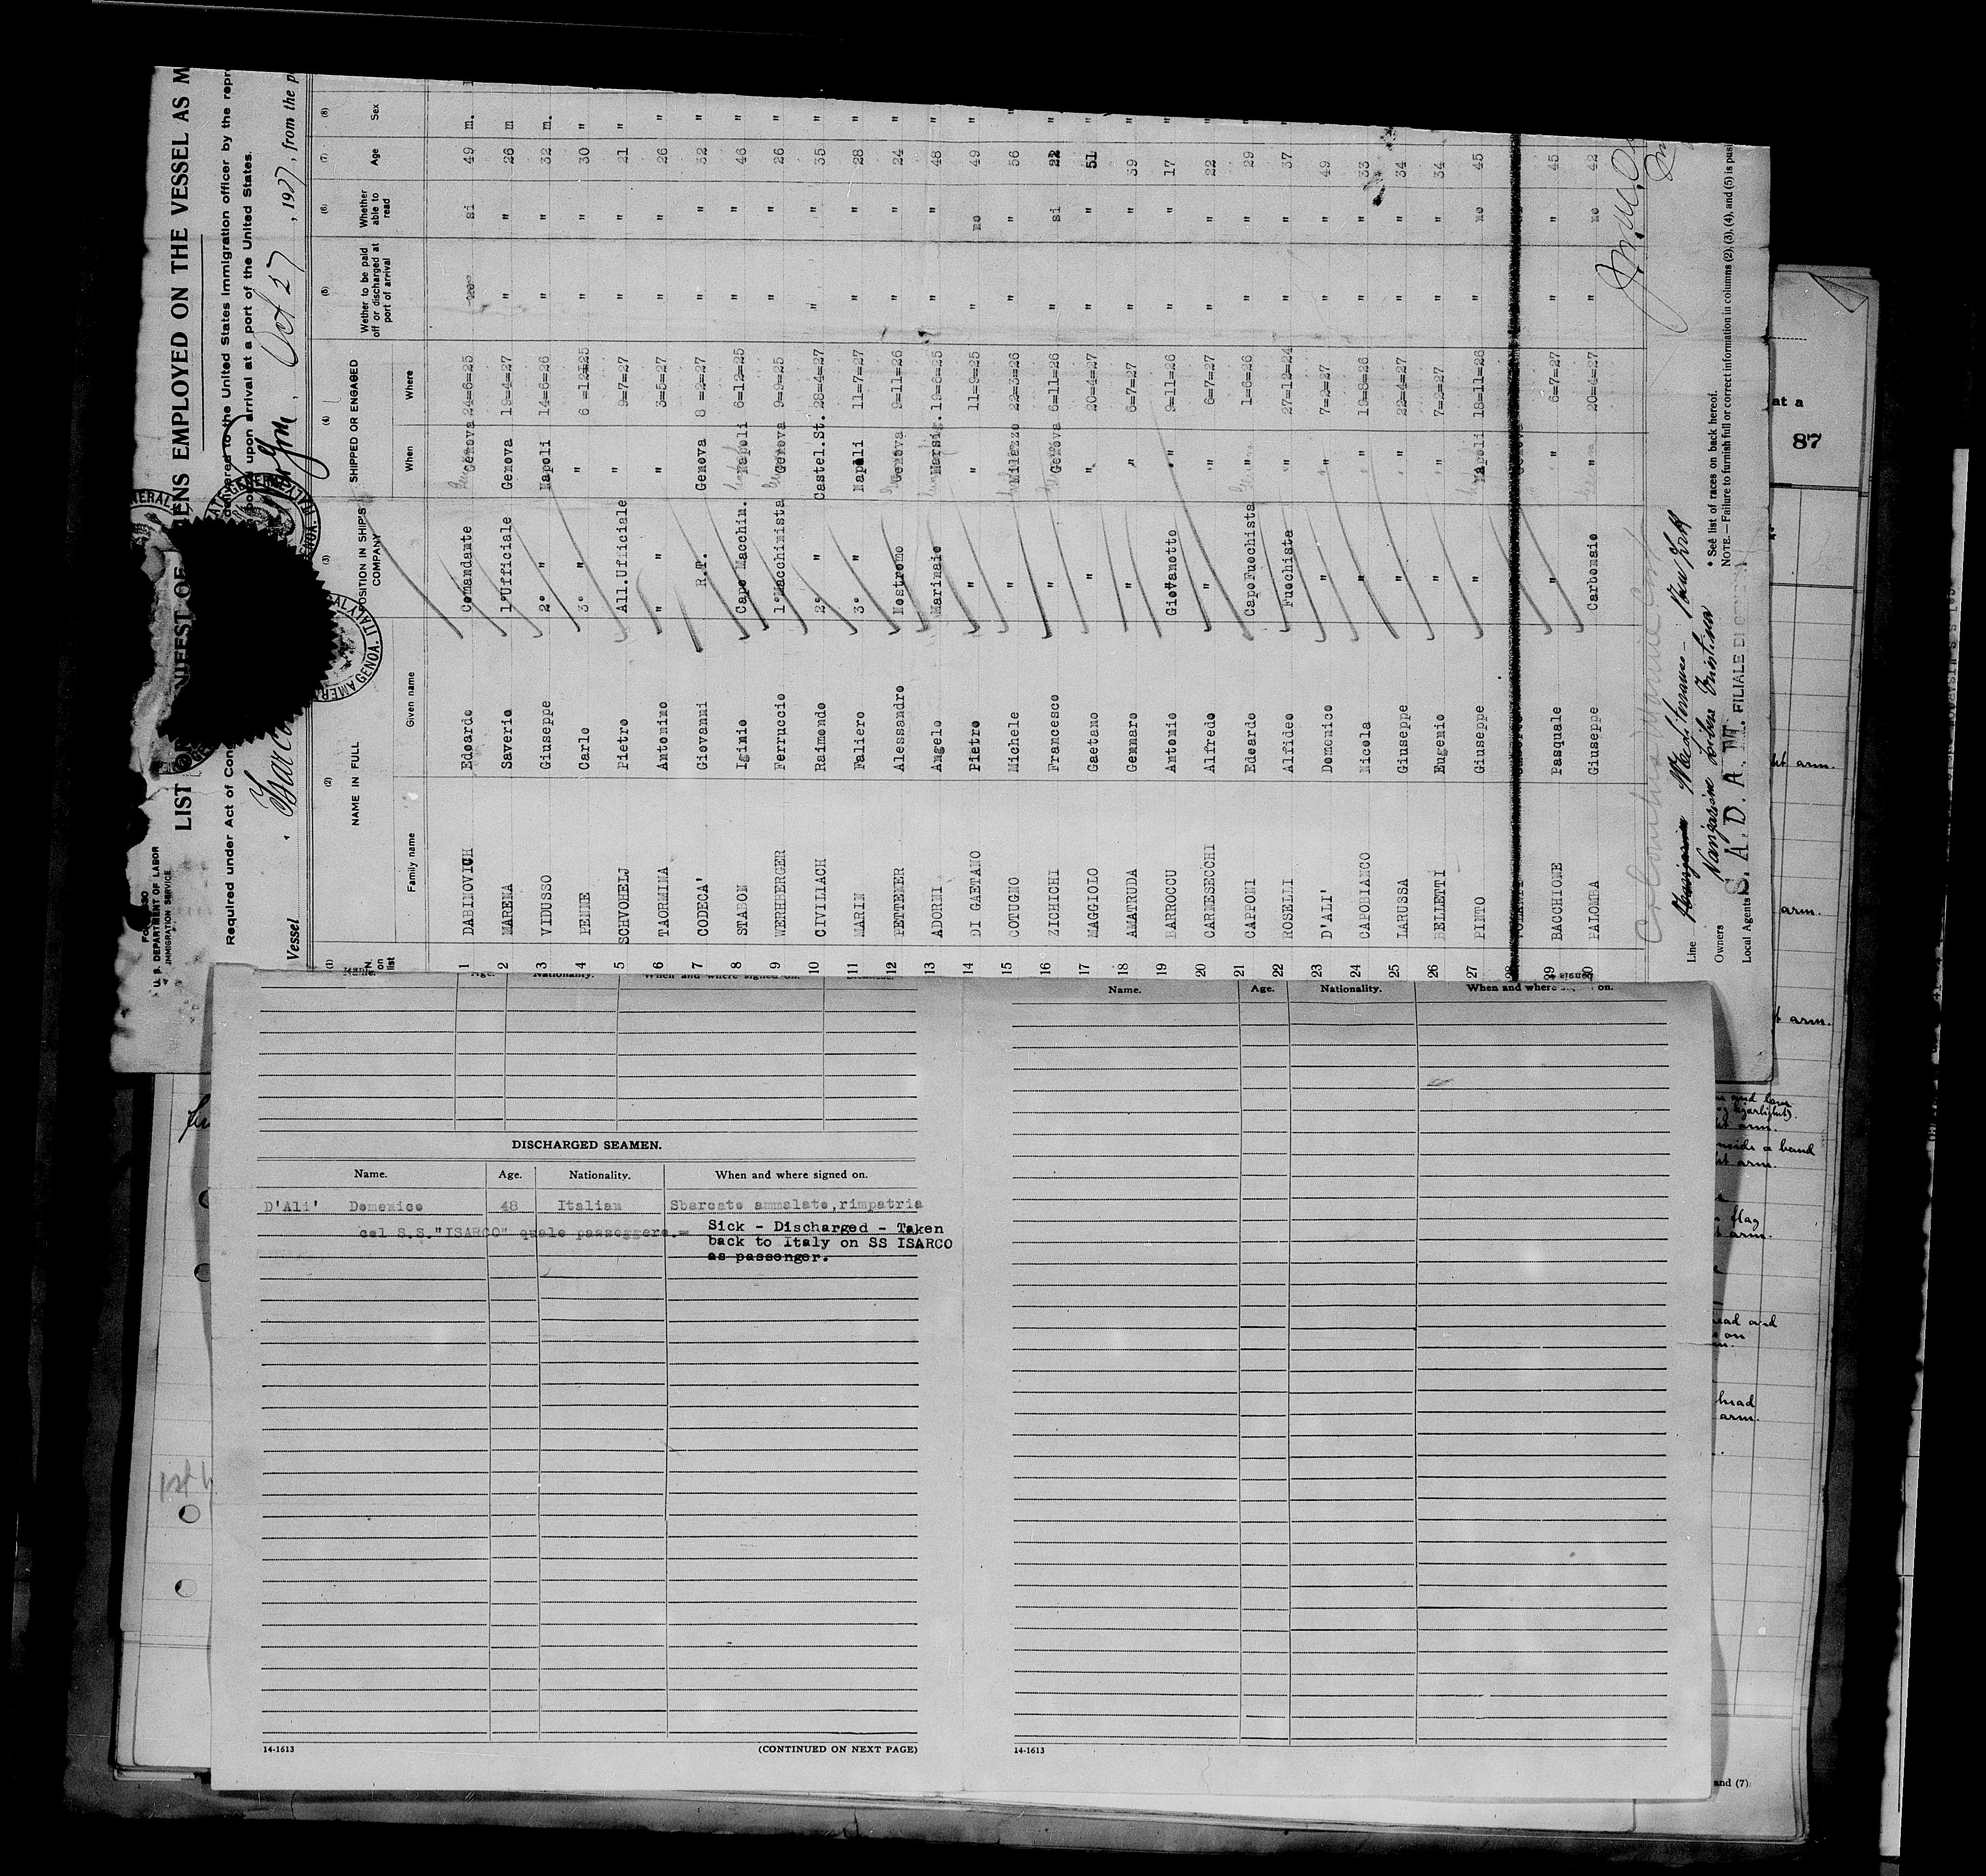 U. S. DEPARTMENT OF LABOR
IMMIGRATION SERVICE
LIST OR MANIFEST OF ALIENS EMPLOYED ON THE VESSEL AS M
delivered to the United States immigration officer by the repr
Required under Act of Cong
upon arrival at a port of the United States.
Vessel Oct 27, 1927, from the p
(1) (2) (3) (4) (5) (6) (7) (8)
No. on list NAME IN FULL POSITION IN SHIP'S COMPANY SHIPPED OR ENGAGED Wether to be paid off or discharged at port of arrival Whether able to read Age Sex
Family name Given name When Where
1 DABINOVICH Edoardo Comandante Genova 24=6=25 no si 49 m.
2 MARENA Saverio 1°Ufficiale Genova 19=4=27 " " 26 m
3 VIDUSSO Giuseppe 2° " Napoli 14=6=26 " " 32 m.
4 PENNE Carlo 3° " " 6 =12=25 " " 30 "
5 SCHVOHELJ Pietro All.Ufficiale " 9=7=27 " " 21 "
6 TAORMINA Antonino " " 3=5=27 " " 26 "
7 CODECA' Giovanni R.T. Genova 8 =2=27 " " 32 "
8 STABON Iginio Capo Macchin. Napoli 6=12=25 " " 46 "
9 WERHBERGER Ferruccio 1°Macchinista Genova 9=9=25 " " 26 "
10 CIVILIACH Raimondo 2° " Castel.St. 28=4=27 " " 35 "
11 MARIN Faliero 3° " Napoli 11=7=27 " " 28 "
12 PETTENER Alessandro Nostromo Genova 9=11=26 " " 24 "
13 ADORNI Angelo Marinaio Marsig. 19=6=25 " " 48 "
14 DI GAETANO Pietro " " 11=9=25 " no 49 "
15 COTUGNO Michele " Milazzo 22=3=26 " " 56 "
16 ZICHICHI Francesco " Genova 6=11=26 " si 22 "
17 MAGGIOLO Gaetano " " 20=4=27 " " 51 "
18 AMATRUDA Gennaro " " 6=7=27 " " 39 "
19 BARROCCU Antonio Giovanotto " 9=11=26 " " 17 "
20 CARNESECCHI Alfredo " " 6=7=27 " " 22 "
21 CAPPONI Edoardo CapoFuochista " 1=6=26 " " 29 "
22 ROSELLI Alfideo Fuochista " 27=12=24 " " 37 "
23 D'ALI' Domenico " " 7=2=27 " " 49
24 CAPOBIANCO Nicola " " 19=8=26 " " 33
25 LARUSSA Giuseppe " " 22=4=27 " " 34
26 BELLETTI Eugenio " " 7=2=27 " " 34
27 PINTO Giuseppe " Napoli 18=11=26 " no 45
28
29 BACCHIONE Pasquale " " 6=7=27 " " 45
30 PALOMBA Giuseppe Carbonaio " 20=4=27 " no 42
Line Mediterraneo - New York
Owners Navigazione Libera Triestina
Local Agents S. A. D. A. M. FILIALE DI GENOVA
* See list of races on back hereof.
NOTE.—Failure to furnish full or correct information in columns (2), (3), (4), and (5) is pu
Name. Age. Nationality. When and where signed on.
DISCHARGED SEAMEN.
Name. Age. Nationality. When and where signed on.
D'Ali' Domenico 48 Italian Sbarcato ammalato,rimpatria
col S.S."ISARCO" quale passeggero.=
Sick - Discharged - Taken
back to Italy on SS ISARCO
as passenger.
14-1613 (CONTINUED ON NEXT PAGE)
Name. Age. Nationality. When and where on.
14-1613
at a
87
arm.
arm.
arm.
inside a band
flag
arm.
head and
on
head
arm.
and (7)